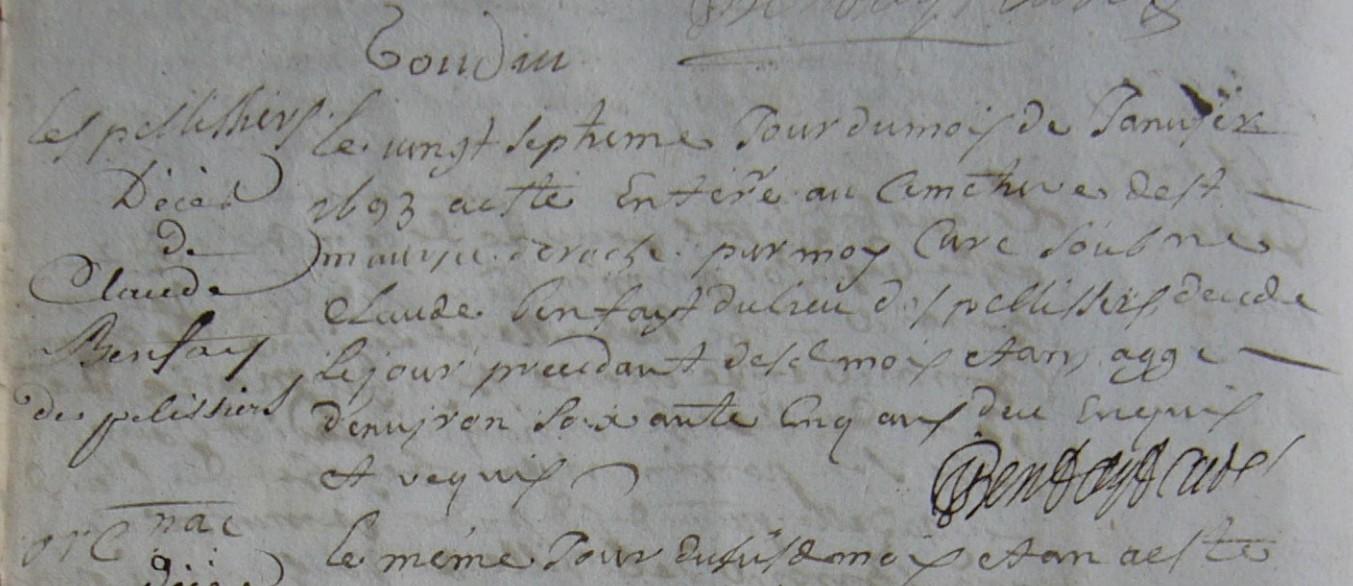 Goudin
les pellissiers
Décès
de
Claude
Benfays
des pelissiers
le vingt septieme Jour du mois de Januier
1693 a esté Enteré au Cimethiere de st
maurice deroche par moy Curé soubsne
Claude benfayt du lieu des pellissiers decede
le jour precedant desd mois et an aggé
denuiron soixante Cinq ans deu Enquis
et requis
Benfayt curé
le méme Jour dususd mois et an a esté